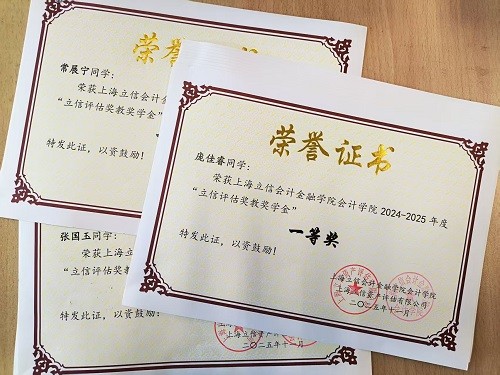 荣誉
常展宁同学：
荣获上海立信会计金
“立信评估奖教奖学金”
特发此证，以资鼓励！
荣誉证书
庞佳睿同学：
荣获上海立信会计金融学院会计学院 2024-2025 年度
“立信评估奖教奖学金”
一等奖
特发此证，以资鼓励！
上海立信会计金融学院会计学院
上海立信资产评估有限公司
二〇二五年十一月
张国玉同学：
荣获上海立信会
“立信评估奖教
特发此证，以资鼓励！
上海立信会计
上海立信资产评
二〇二五年十一